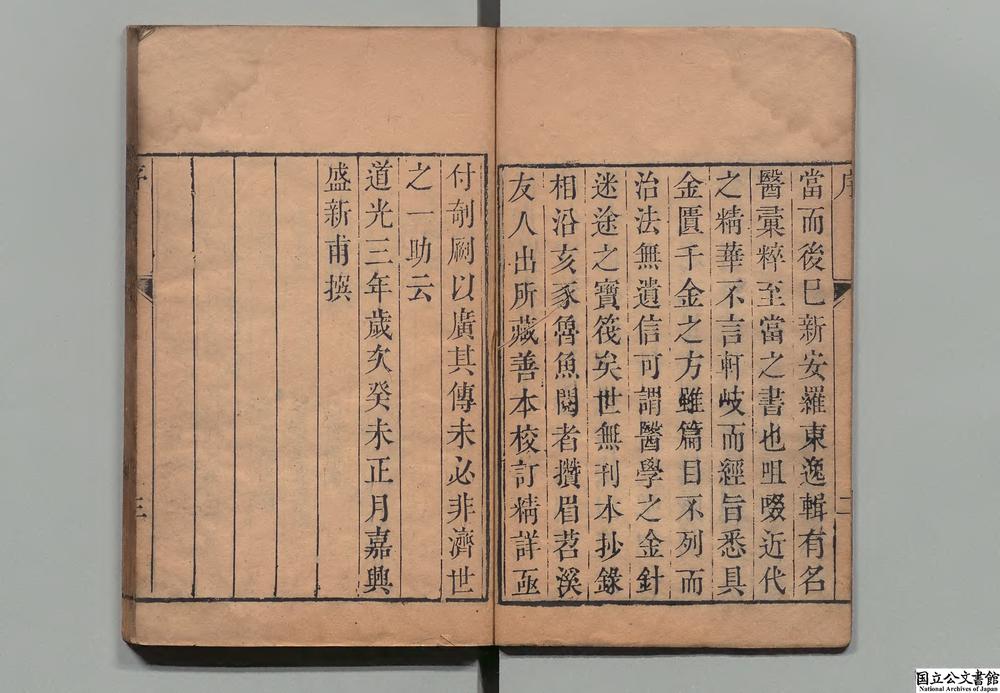 序
二
當而後已新安羅東逸輯有名
醫彚粹至當之書也咀啜近代
之精華不言軒岐而經旨悉具
金匱千金之方雖篇目不列而
治法無遺信可謂醫學之金針
迷途之寶筏矣世無刊本抄錄
相沿亥豕魯魚閱者攢眉苕溪
友人出所藏善本校訂精詳亟
付剞劂以廣其傳未必非濟世
之一助云
道光三年歲次癸未正月嘉興
盛新甫撰
序
三
国立公文書館
National Archives of Japan